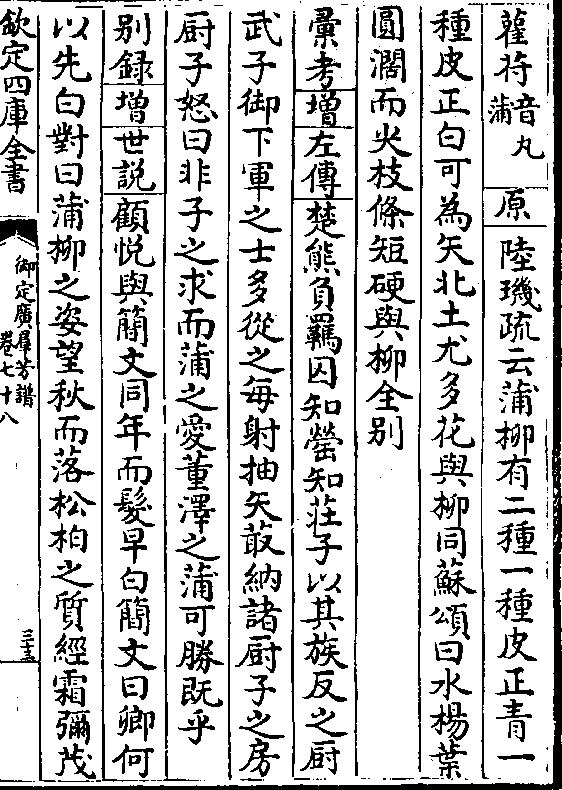 雚苻音丸蒲 原 陸璣疏云蒲柳有二種一種皮正青一
種皮正白可為矢北土尤多花與柳同蘇頌曰水楊葉
圓濶而火枝條短硬與柳全别
彚考増左傳楚熊負羈囚知罃知莊子以其族反之厨
武子御下軍之士多從之每射抽矢菆納諸厨子之房
厨子怒曰非子之求而蒲之愛董澤之蒲可勝既乎
别録増世説顧悦與簡文同年而髮早白簡文曰卿何
以先白對曰蒲柳之姿望秋而落松柏之質經霜彌茂
欽定四庫全書
御定廣羣芳譜
卷七十八
三十五